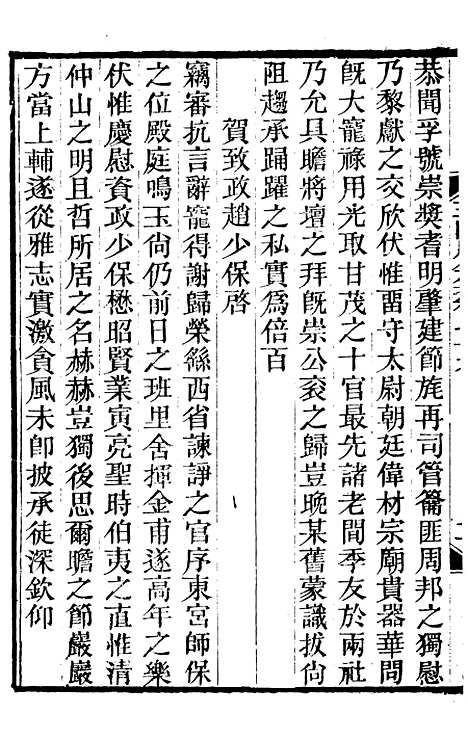 恭聞孚號崇獎耆明肇建節旄再司管籥匪周邦之獨慰
乃黎獻之交欣伏惟畱守太尉朝廷偉材宗廟貴器華問
旣大寵祿用光取甘茂之十官最先諸老間季友於兩社
乃允具瞻將壇之拜旣崇公衮之歸豈晚某舊蒙識拔尙
阻趨承踊躍之私實爲倍百
賀致政趙少保啓
竊審抗言辭寵得謝歸榮繇西省諫諍之官序東宮師保
之位殿庭鳴玉尙仍前日之班里舍揮金甫遂高年之樂
伏惟慶慰資政少保懋昭賢業寅亮聖時伯夷之直惟清
仲山之明且哲所居之名赫赫豈獨後思爾瞻之節嚴嚴
方當上輔遂從雅志實激貪風未卽披承徒深欽仰